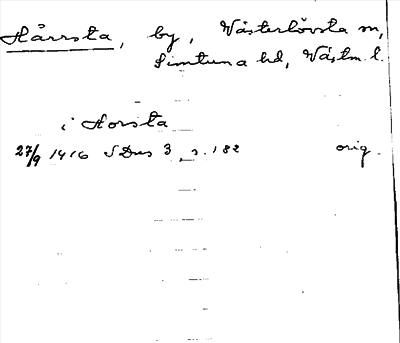 Hårrsta, by, Västerlövsta sn,
Simtuna hd, Västm. l.
i Horsta
27/9 1416 SDns 3, s. 182 orig.